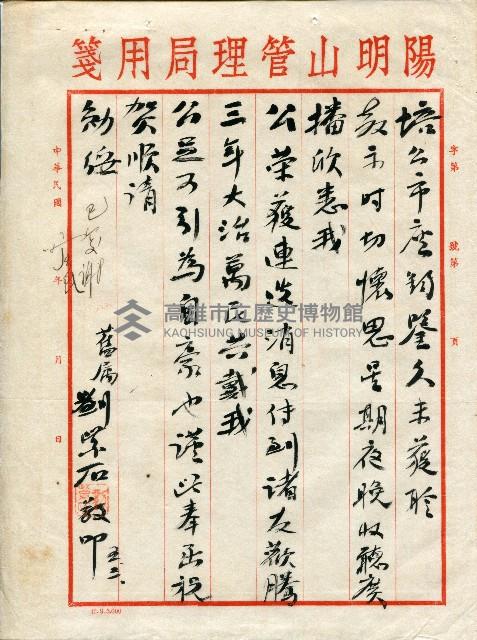 陽明山管理局用箋
字第
號第
頁
培公市座鈞鑒久未獲聆
教示時切懷思星期夜晚收聽廣
播欣悉我
公榮獲連選消息傳到諸友歡騰
三年大治萬民共戴我
公足可引為自豪也謹此奉函祝
賀順請
勛綏
舊屬劉榮石敬叩 五、二、
已覆謝
中華民國 年 月 日
高雄市立歷史博物館
KAOHSIUNG MUSEUM OF HISTORY